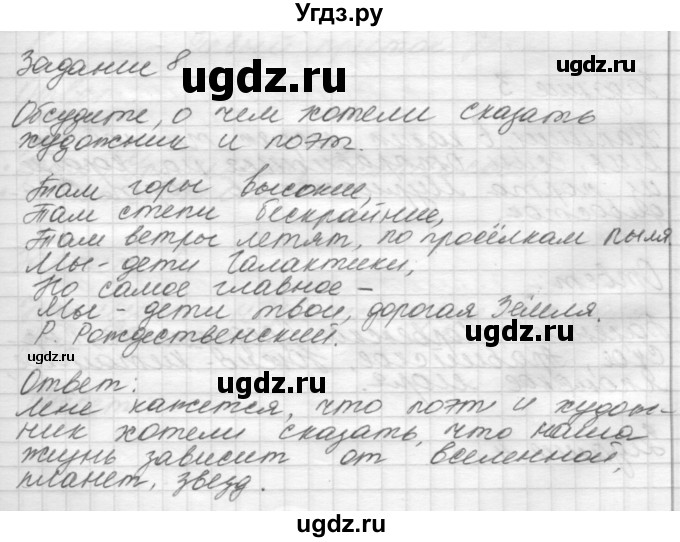 Угдз.ру
Задание 8
ugdz.ru
ugdz.ru
Обсудите, о чем хотели сказать
художник и поэт.
Там горы высокие,
Там степи бескрайние,
Там ветры летят, по просёлкам пыля.
Мы - дети Галактики,
Но самое главное -
Мы - дети твои, дорогая Земля.
Р. Рождественский.
ugdz.ru
ugdz.ru
ugdz.ru
Ответ:
Мне кажется, что поэт и худож-
ник хотели сказать, что наша
жизнь зависит от вселенной,
планет, звезд.
ugdz.ru
ugdz.ru
ugdz.ru